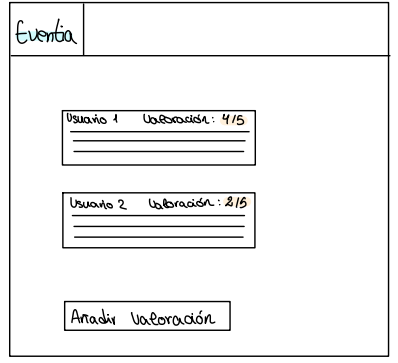 Eventia
Usuario 1 Valoración: 4/5
Usuario 2 Valoración: 2/5
Añadir Valoración